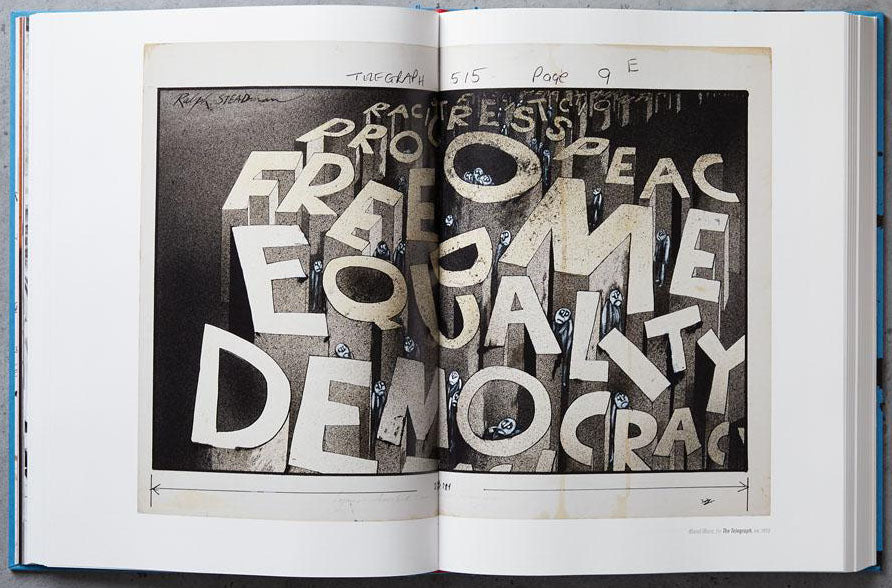 TELEGRAPH 515 Page 9 E
Ralph STEADman
RACI
PROGRESS
PEAC
FREEDOM
EQUALITY
DEMOCRAC
The Telegraph,